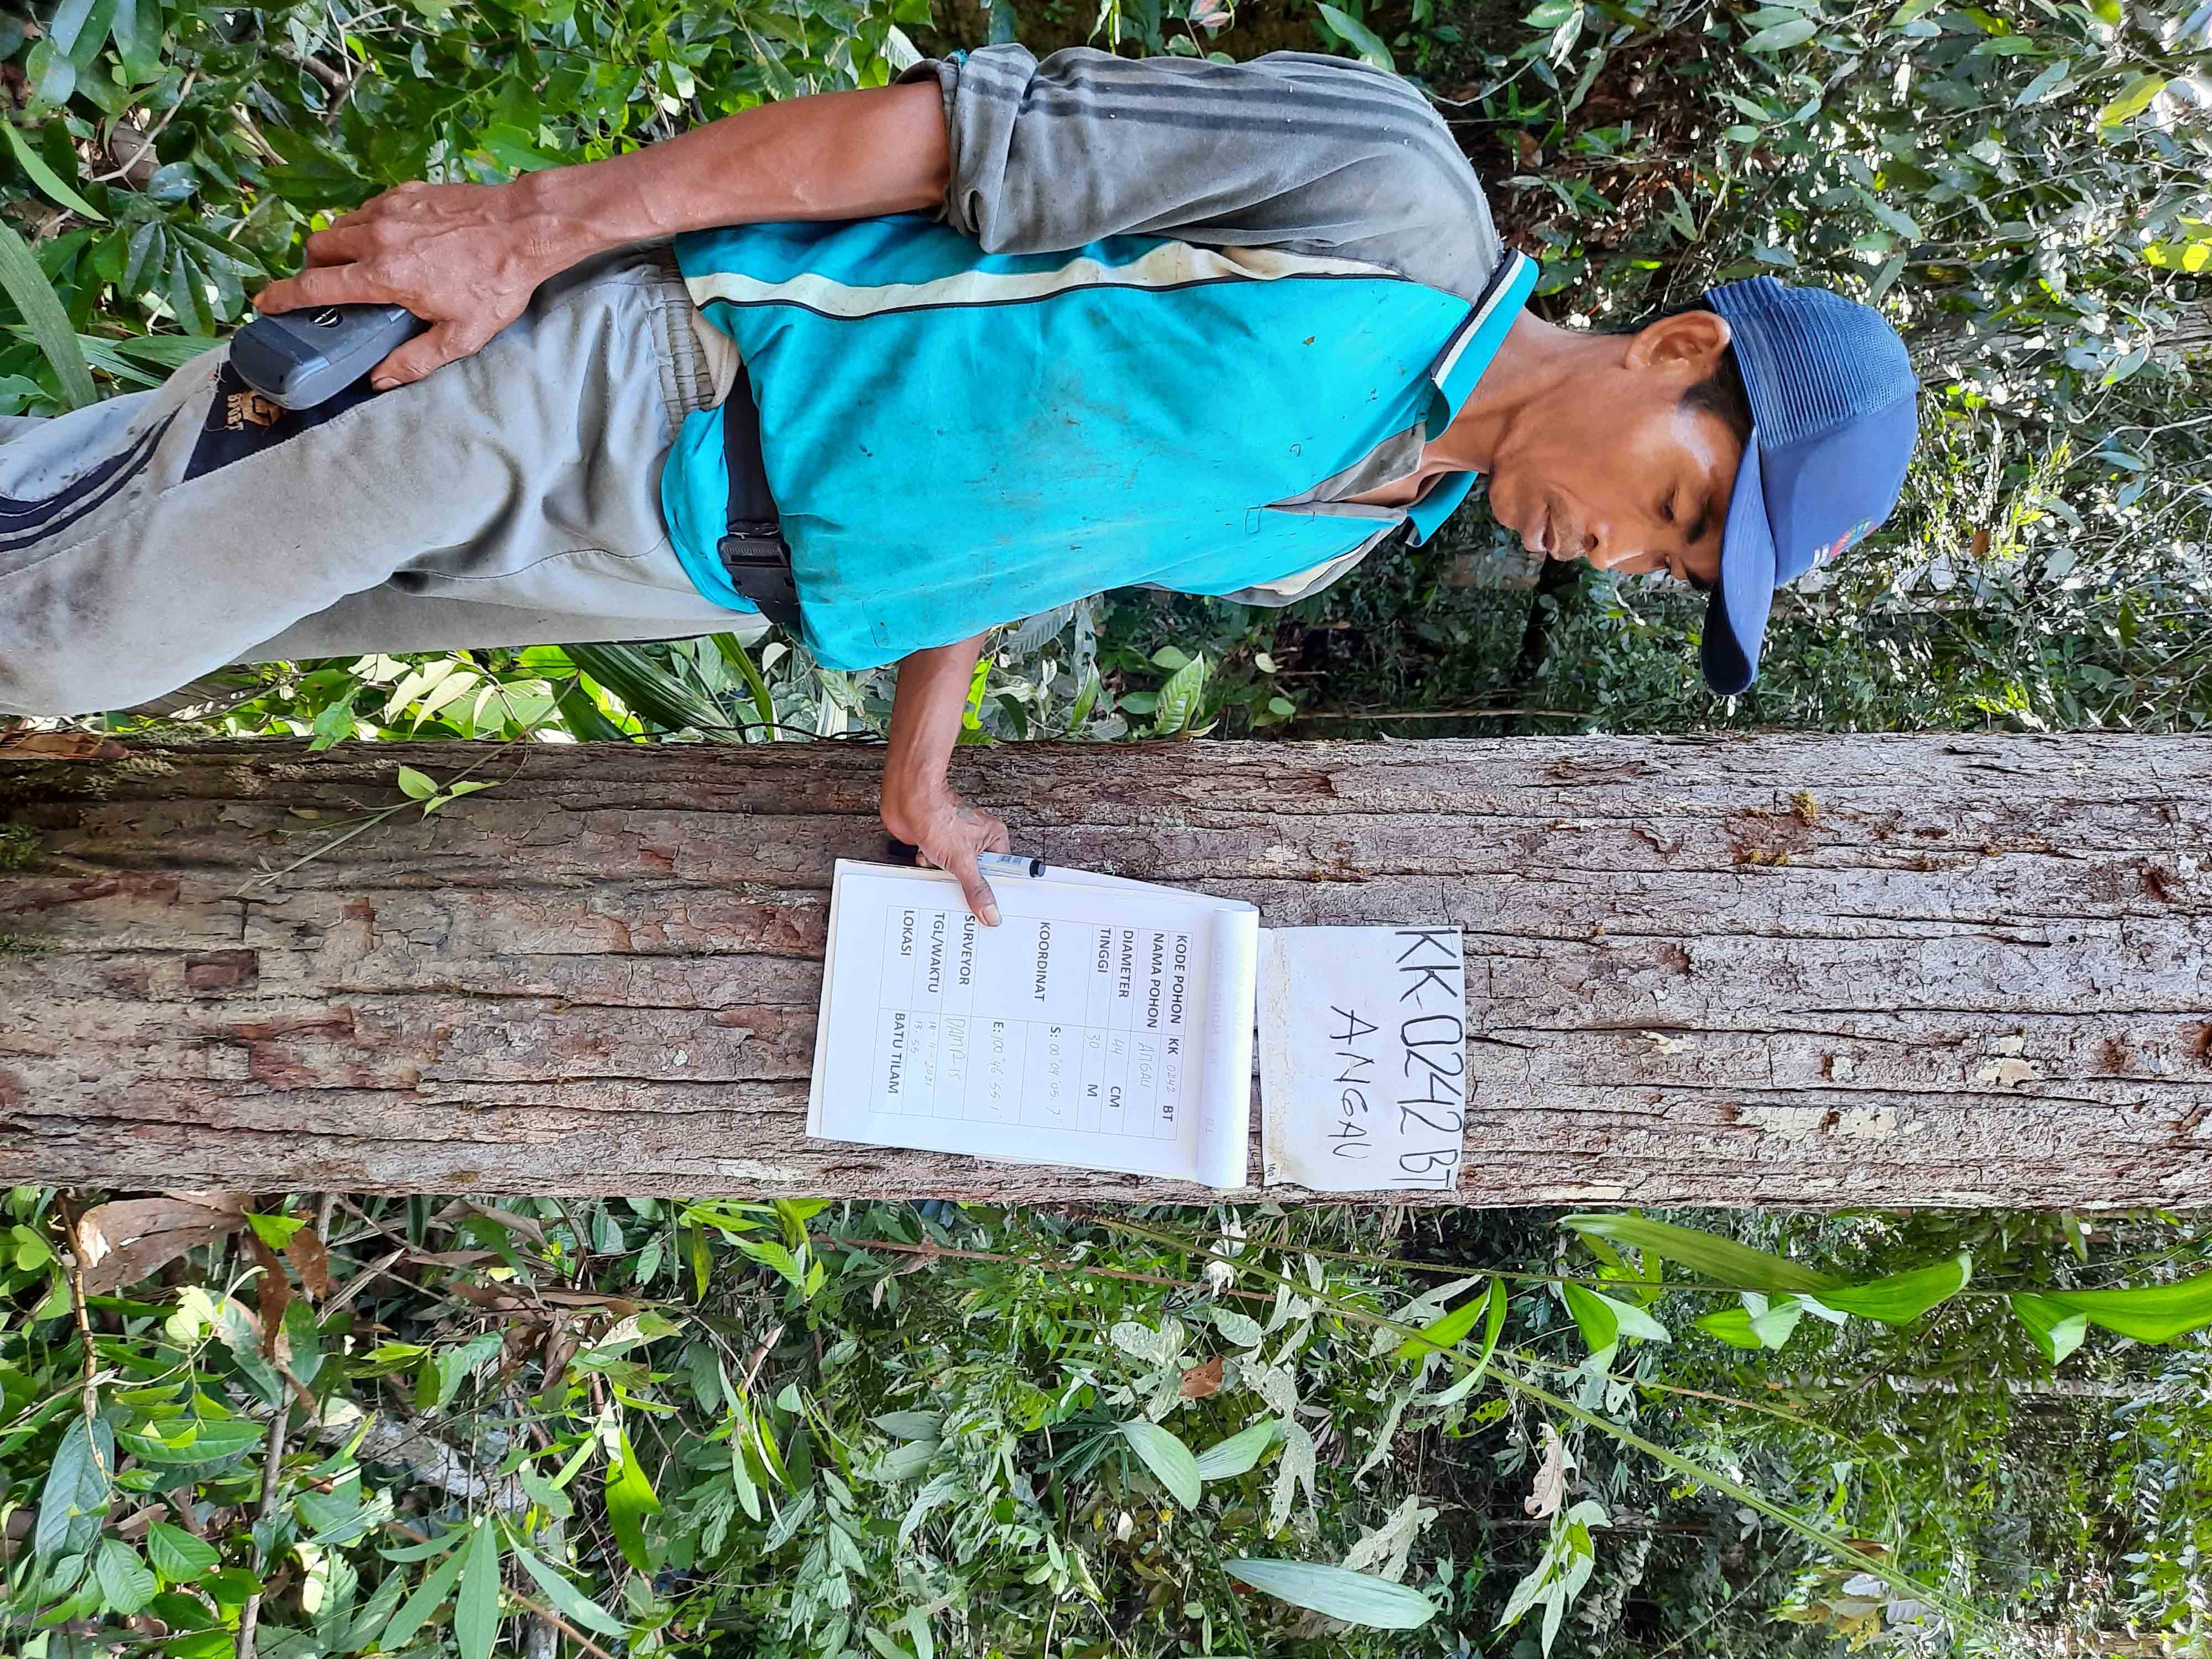 KK-0242 BT
ANGAU
KODE POHON KK 0242 BT
NAMA POHON ANGAU
DIAMETER 44 CM
TINGGI 30 M
KOORDINAT S: 00 09 05.7
E: 100 46 55.1
SURVEYOR DAMP-15
TGL/WAKTU 19-11-2021
13.55
LOKASI BATU TILAM